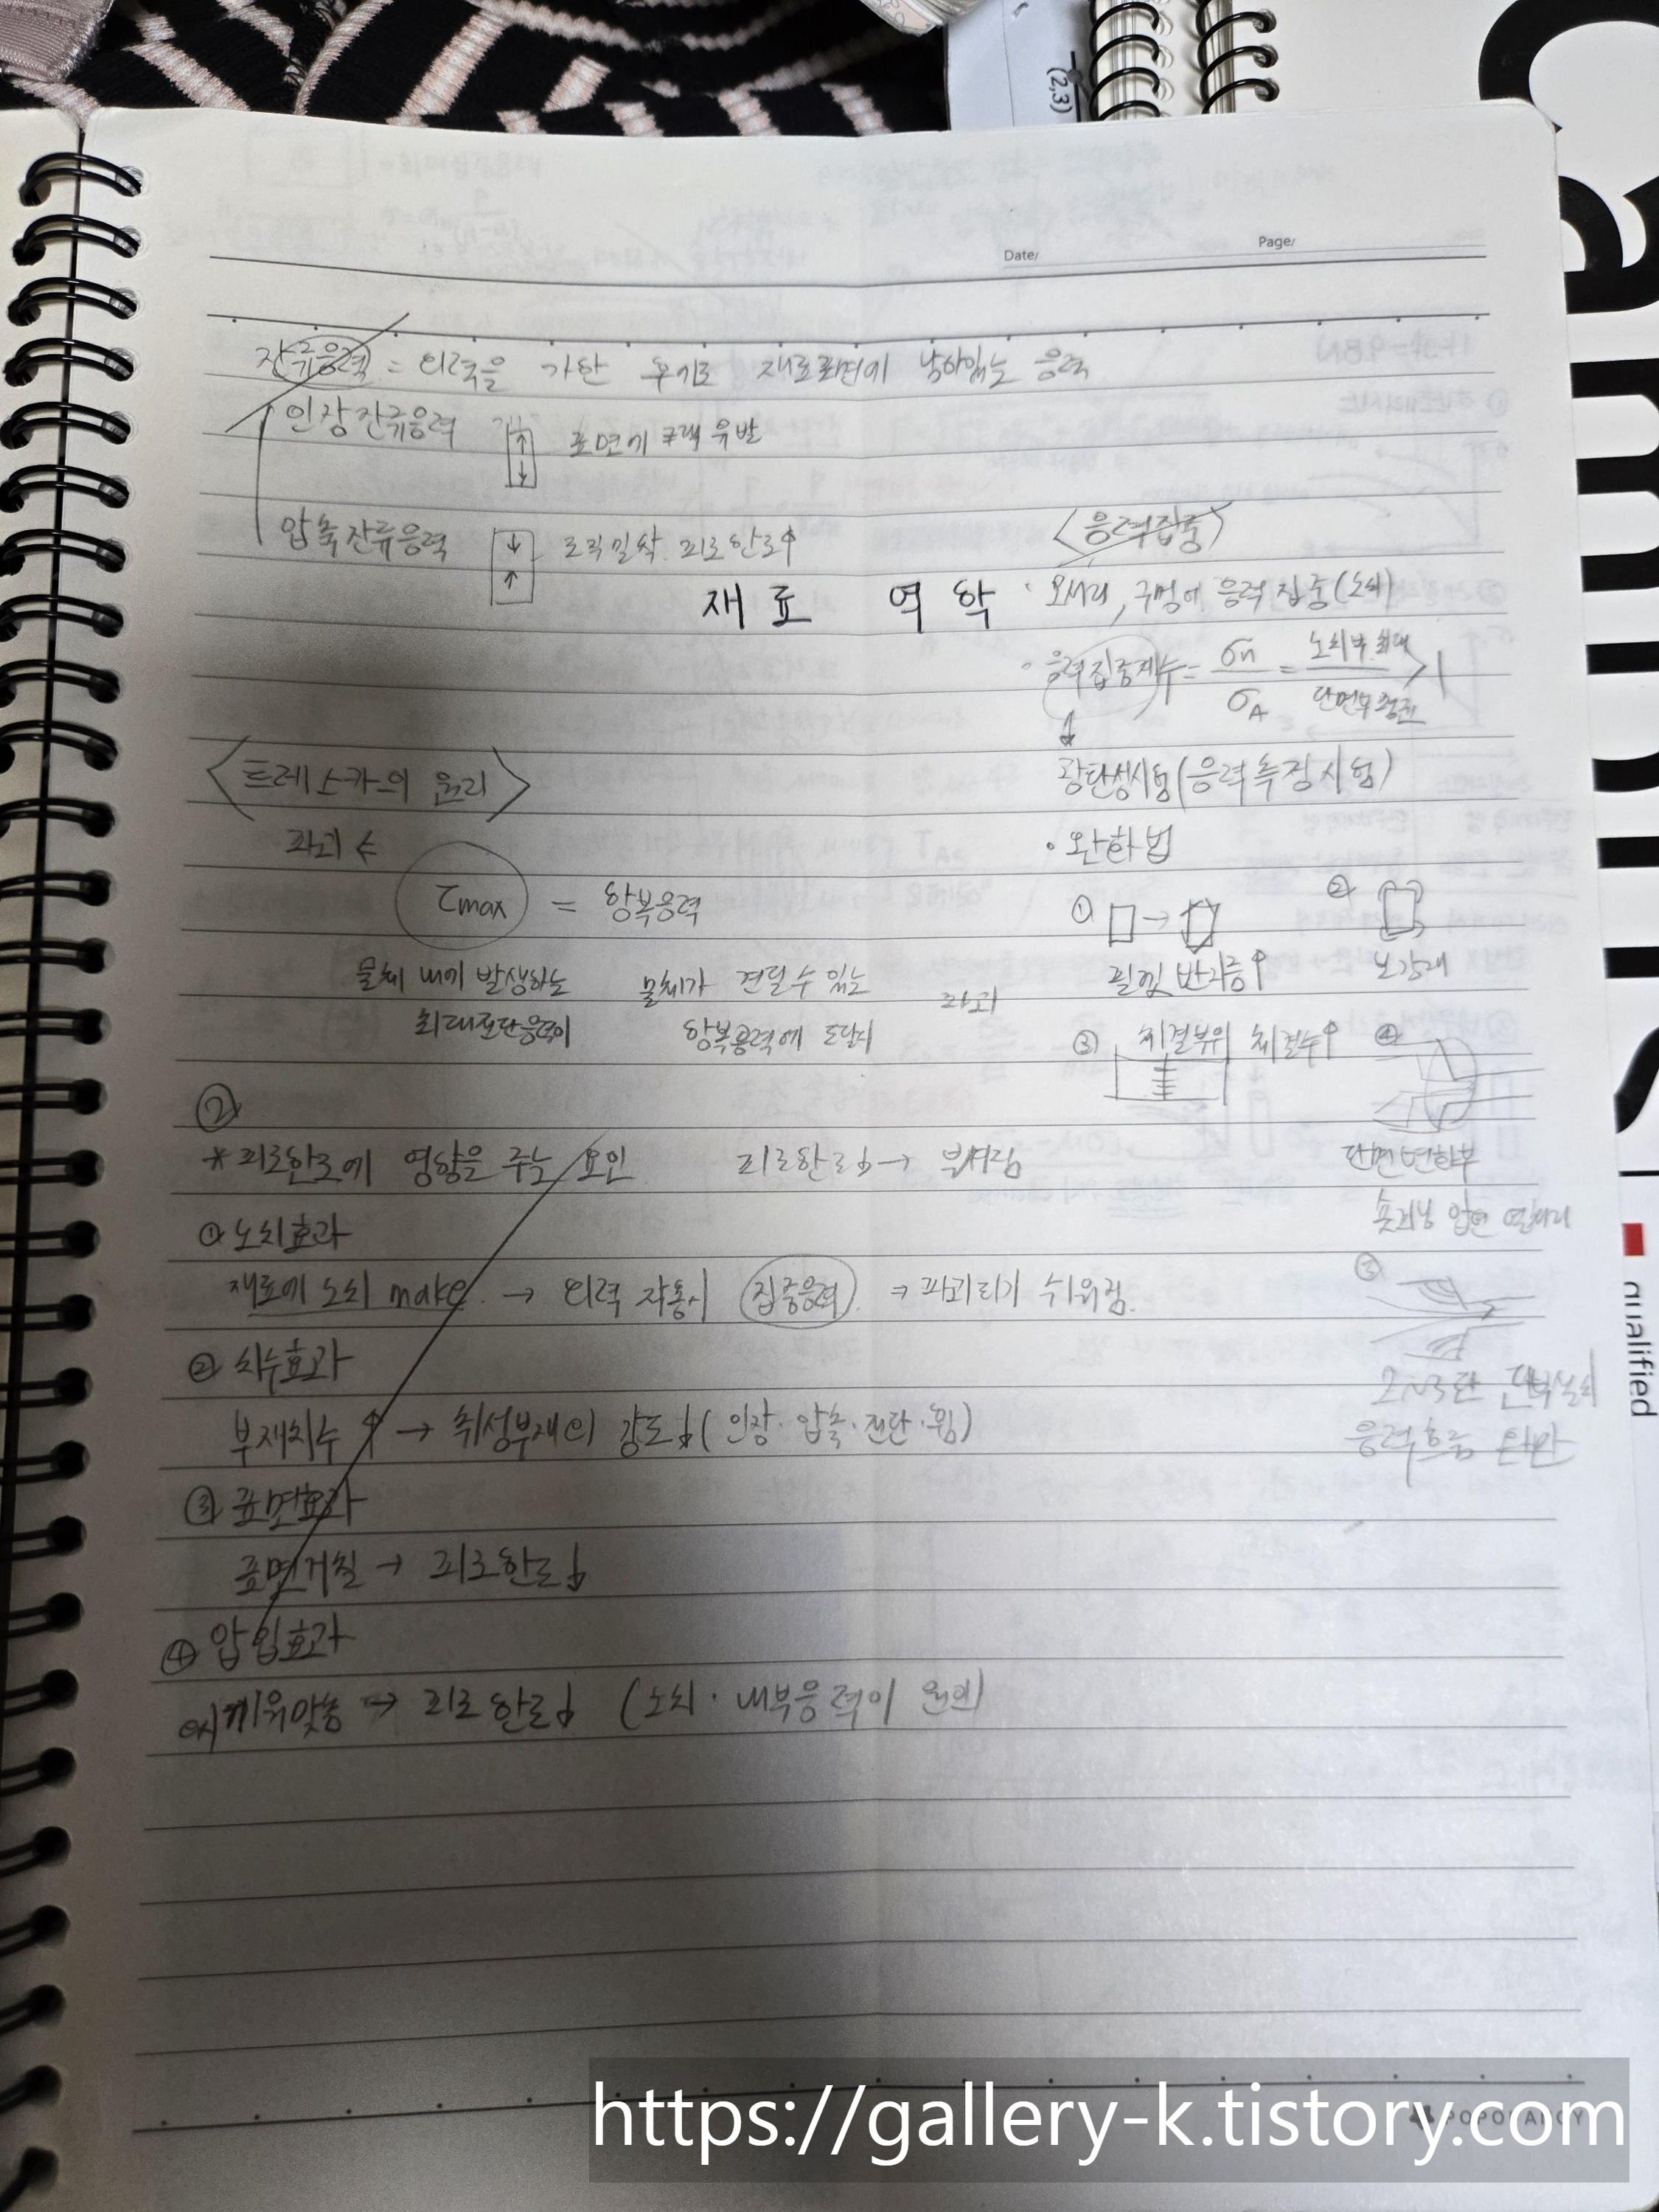 (2,3)
Date/
Page/
잔류응력 = 외력을 가한 후에도 재료표면에 남아있는 응력
인장잔류응력 표면에 크랙 유발
압축잔류응력 조직밀착. 피로한도↑
재료 역학
<트레스카의 원리>
파괴
τmax = 항복응력
물체 내에 발생하는 최대전단응력이
물체가 견딜 수 있는 항복응력에 도달시
파괴
<응력집중>
· 모서리, 구멍에 응력 집중(노치)
· 응력집중계수 = σn / σA = 노치부 최대 / 단면부 평균 > 1
↓
광탄성시험(응력측정시험)
· 완화법
① □ → 필렛 반지름↑
② 보강재
③ 체결부위 체결수↑
④ 단면변화부
숏피닝 압연
⑤
2~3단 단부설치
응력흐름 완만
②
* 피로한도에 영향을 주는 요인 피로한도↓ → 부서짐
① 노치효과
재료에 노치 make → 외력 작용시 집중응력 → 파괴되기 쉬워짐.
② 치수효과
부재치수↑ → 취성부재의 강도↓ (인장·압축·전단·휨)
③ 표면효과
표면거칠 → 피로한도↓
④ 압입효과
억지끼워맞춤 → 피로한도↓ (노치·내부응력이 원인)
qualified
POPOFANCY
https://gallery-k.tistory.com